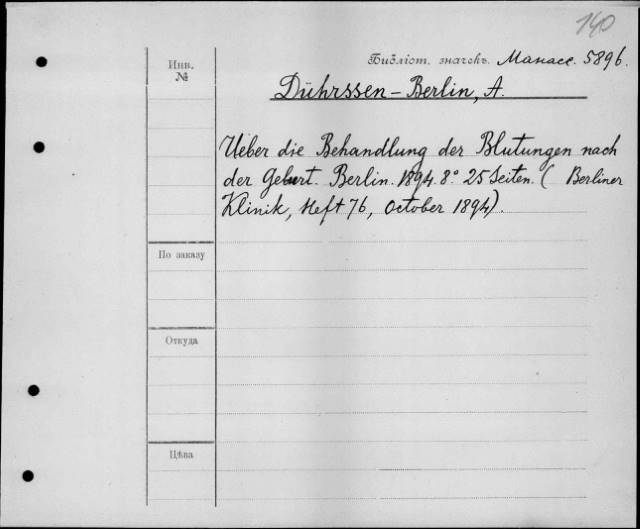 140
Инв. №
Библіот. значекъ. Манасс. 5896.
Dührssen-Berlin, A.
Ueber die Behandlung der Blutungen nach
der Geburt. Berlin. 1894. 8° 25 Seiten. (Berliner
Klinik, Heft 76, October 1894).
По заказу
Откуда
Цѣна